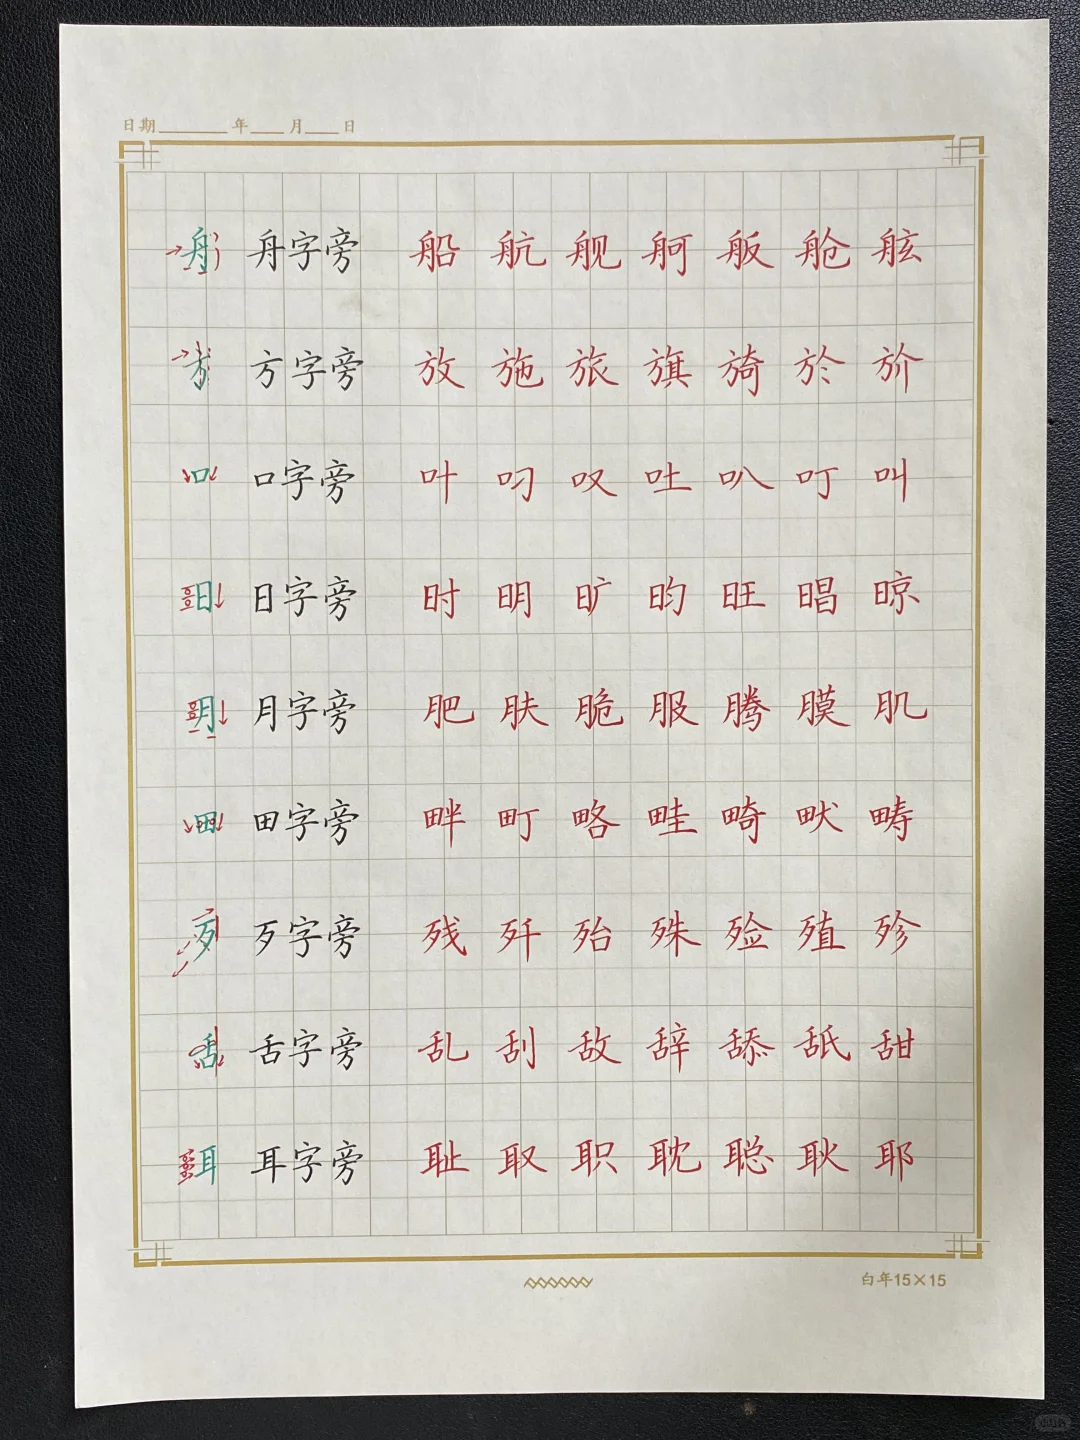 日期 年 月 日
舟 舟字旁 船 航 舰 舸 舨 舱 舷
方 方字旁 放 施 旅 旗 旖 於 旂
口 口字旁 叶 叼 叹 吐 叭 叮 叫
日 日字旁 时 明 旷 昀 旺 晿 晾
月 月字旁 肥 肤 脆 服 腾 膜 肌
田 田字旁 畔 町 略 畦 畸 畎 畴
歹 歹字旁 残 歼 殆 殊 殓 殖 殄
舌 舌字旁 乱 刮 敌 辞 舔 舐 甜
耳 耳字旁 耻 取 职 耽 聪 耿 耶
白年15×15